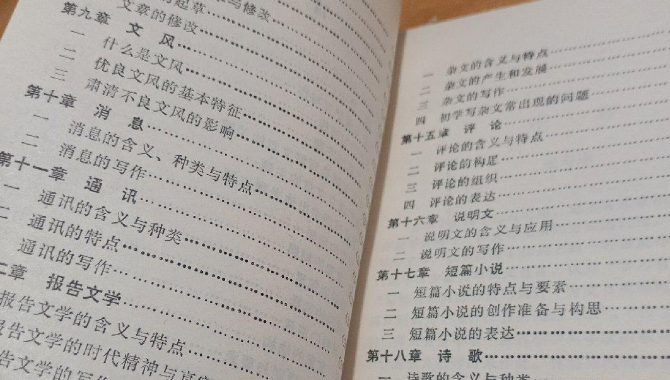 起草
与修改
文章的修改
第九章 文风
一 什么是文风
二 优良文风的基本特征
三 肃清不良文风的影响
第十章 消息
一 消息的含义、种类与特点
二 消息的写作
第十一章 通讯
一 通讯的含义与种类
二 通讯的特点
通讯的写作
二章 报告文学
报告文学的含义与特点
报告文学的时代精神与真实
告文学的写作
一 杂文的含义与特点
二 杂文的产生和发展
三 杂文的写作
四 初学写杂文常出现的问题
第十五章 评论
一 评论的含义与特点
二 评论的构思
三 评论的组织
四 评论的表达
第十六章 说明文
一 说明文的含义与应用
二 说明文的写作
第十七章 短篇小说
一 短篇小说的特点与要素
二 短篇小说的创作准备与构思
三 短篇小说的表达
第十八章 诗歌
一 诗歌的含义与种类